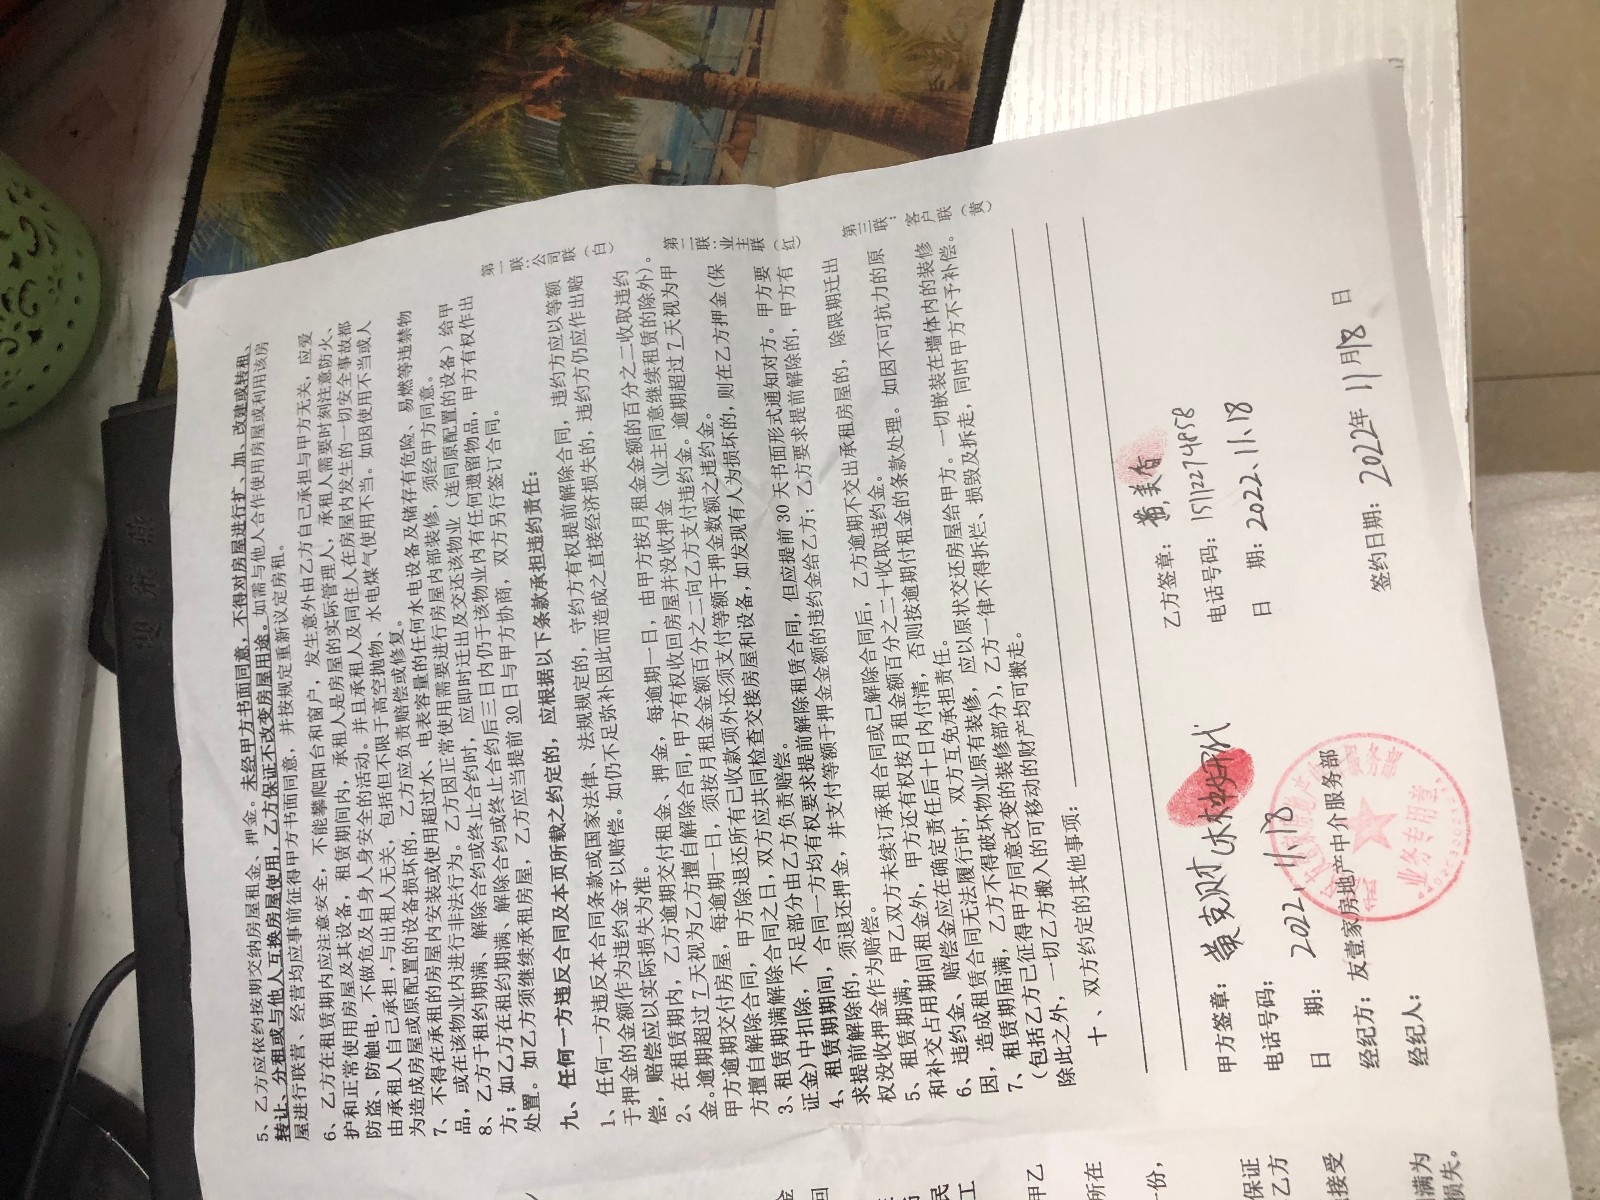 5、乙方应依约按期交纳房屋租金、押金。未经甲方书面同意，不得对房屋进行扩、加、改建或转租、
转让、分租或与他人互换房屋使用，乙方保证不改变房屋用途。如需与他人合作使用房屋或利用该房
屋进行联营、经营均应事前征得甲方书面同意，并按规定重新议定房租。
6、乙方在租赁期内应注意安全，不能攀爬阳台和窗户，发生意外由乙方自己承担与甲方无关，应爱
护和正常使用房屋及其设备，租赁期间内，承租人是房屋的实际管理人，承租人需要时刻注意防火、
防盗、防触电，不做危及自身人身安全的活动。并且承租人及同住人在房屋内发生的一切安全事故都
由承租人自己承担，与出租人无关，包括但不限于高空抛物、水电煤气使用不当。如因使用不当或人
为造成房屋或原配置的设备损坏的，乙方应负责赔偿或修复。
7、不得在承租的房屋内安装或使用超过水、电表容量的任何水电设备及储存有危险、易燃等违禁物
品，或在该物业内进行非法行为。乙方因正常使用需要进行房屋内部装修，须经甲方同意。
8、乙方于租约期满、解除合约或终止合约时，应即时迁出及交还该物业（连同原配置的设备）给甲
方；如乙方在租约期满、解除合约或终止合约后三日内仍于该物业内有任何遗留物品，甲方有权作出
处置。如乙方须继续承租房屋，乙方应当提前 30 日与甲方协商，双方另行签订合同。
九、任何一方违反合同及本页所载之约定的，应根据以下条款承担违约责任：
1、任何一方违反本合同条款或国家法律、法规规定的，守约方有权提前解除合同，违约方应以等额
于押金的金额作为违约金予以赔偿。如仍不足弥补因此而造成之直接经济损失的，违约方仍应作出赔
偿，赔偿应以实际损失为准。
2、在租赁期内，乙方逾期交付租金、押金，每逾期一日，由甲方按月租金金额的百分之二收取违约
金。逾期超过 7 天视为乙方擅自解除合同，甲方有权收回房屋并没收押金（业主同意继续租赁的除外）。
甲方逾期交付房屋，每逾期一日，须按月租金金额百分之二向乙方支付违约金。逾期超过 7 天视为甲
方擅自解除合同，甲方除退还所有已收款项外还须支付等额于押金数额之违约金。
3、租赁期满解除合同之日，双方应共同检查交接房屋和设备，如发现有人为损坏的，则在乙方押金（保
证金）中扣除，不足部分由乙方负责赔偿。
4、租赁期期间，合同一方均有权要求提前解除租赁合同，但应提前 30 天书面形式通知对方。甲方要
求提前解除的，须退还押金，并支付等额于押金金额的违约金给乙方；乙方要求提前解除的，甲方有
权没收押金作为赔偿。
5、租赁期满，甲乙双方未续订承租合同或已解除合同后，乙方逾期不交出承租房屋的，除限期迁出
和补交占用期间租金外，甲方还有权按月租金金额百分之二十收取违约金。
6、违约金、赔偿金应在确定责任后十日内付清，否则按逾期付租金的条款处理。如因不可抗力的原
因，造成租赁合同无法履行时，双方互免承担责任。
7、租赁期届满，乙方不得破坏物业原有装修，应以原状交还房屋给甲方。一切嵌装在墙体内的装修
（包括乙方已征得甲方同意改变的装修部分），乙方一律不得拆烂、损毁及拆走，同时甲方不予补偿。
除此之外，一切乙方搬入的可移动的财产均可搬走。
十、双方约定的其他事项：
第一联：公司联（白）
第二联：业主联（红）
第三联：客户联（黄）
甲方签章：黄克财
乙方签章：黄美香
电话号码：
电话号码：15112274858
日 期：2022.11.18
日 期：2022.11.18
经纪方：友壹家房地产中介服务部
经纪人：
签约日期：2022年11月18日
业务专用章
回
民
工
甲乙
所在
份，
保证
乙方
接受
满为
损失。